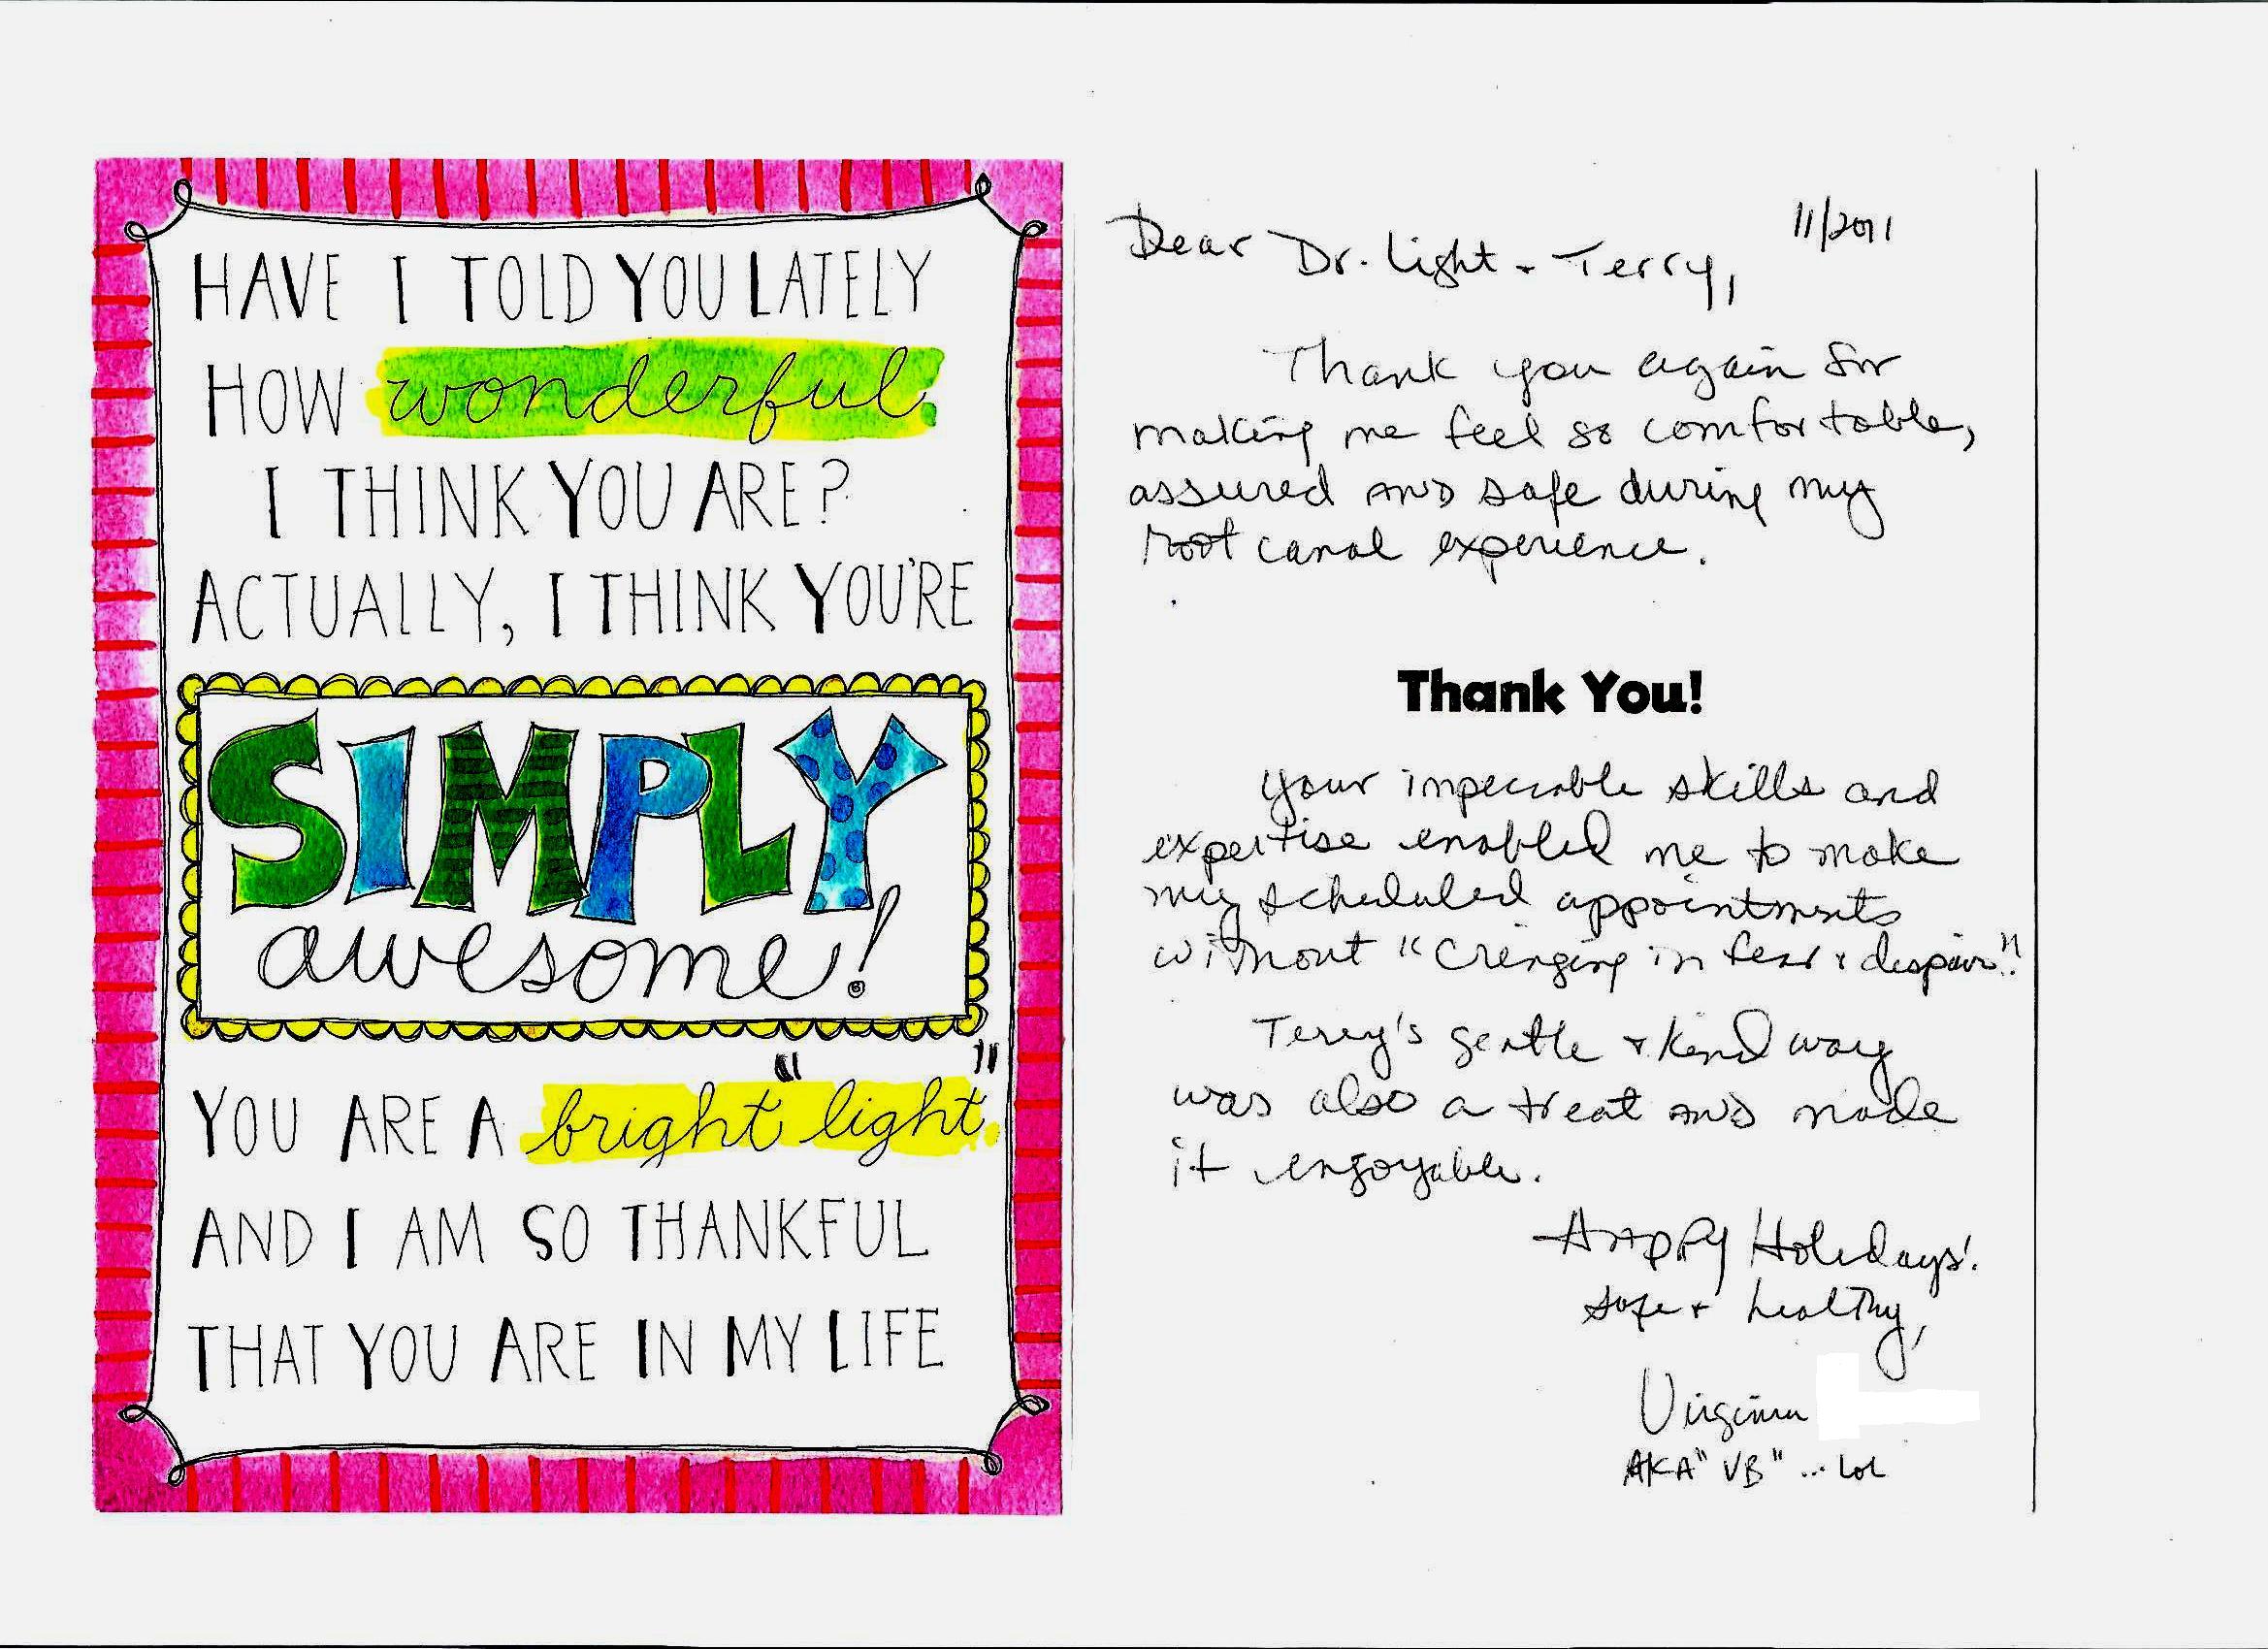 HAVE I TOLD YOU LATELY
HOW wonderful
I THINK YOU ARE?
ACTUALLY, I THINK YOU'RE
SIMPLY
awesome!
YOU ARE A bright "light"
AND I AM SO THANKFUL
THAT YOU ARE IN MY LIFE
11/2011
Dear Dr. Light + Terry,
Thank you again for
making me feel so comfortable,
assured AND safe during my
root canal experience.
Thank You!
Your impeccable skills and
expertise enabled me to make
my scheduled appointments
without "Cringing in fear + despair"!
Terry's gentle + kind way
was also a treat AND made
it enjoyable.
HAPPY Holidays!
safe + healthy,
Virginia
AKA "VB" ... LOL